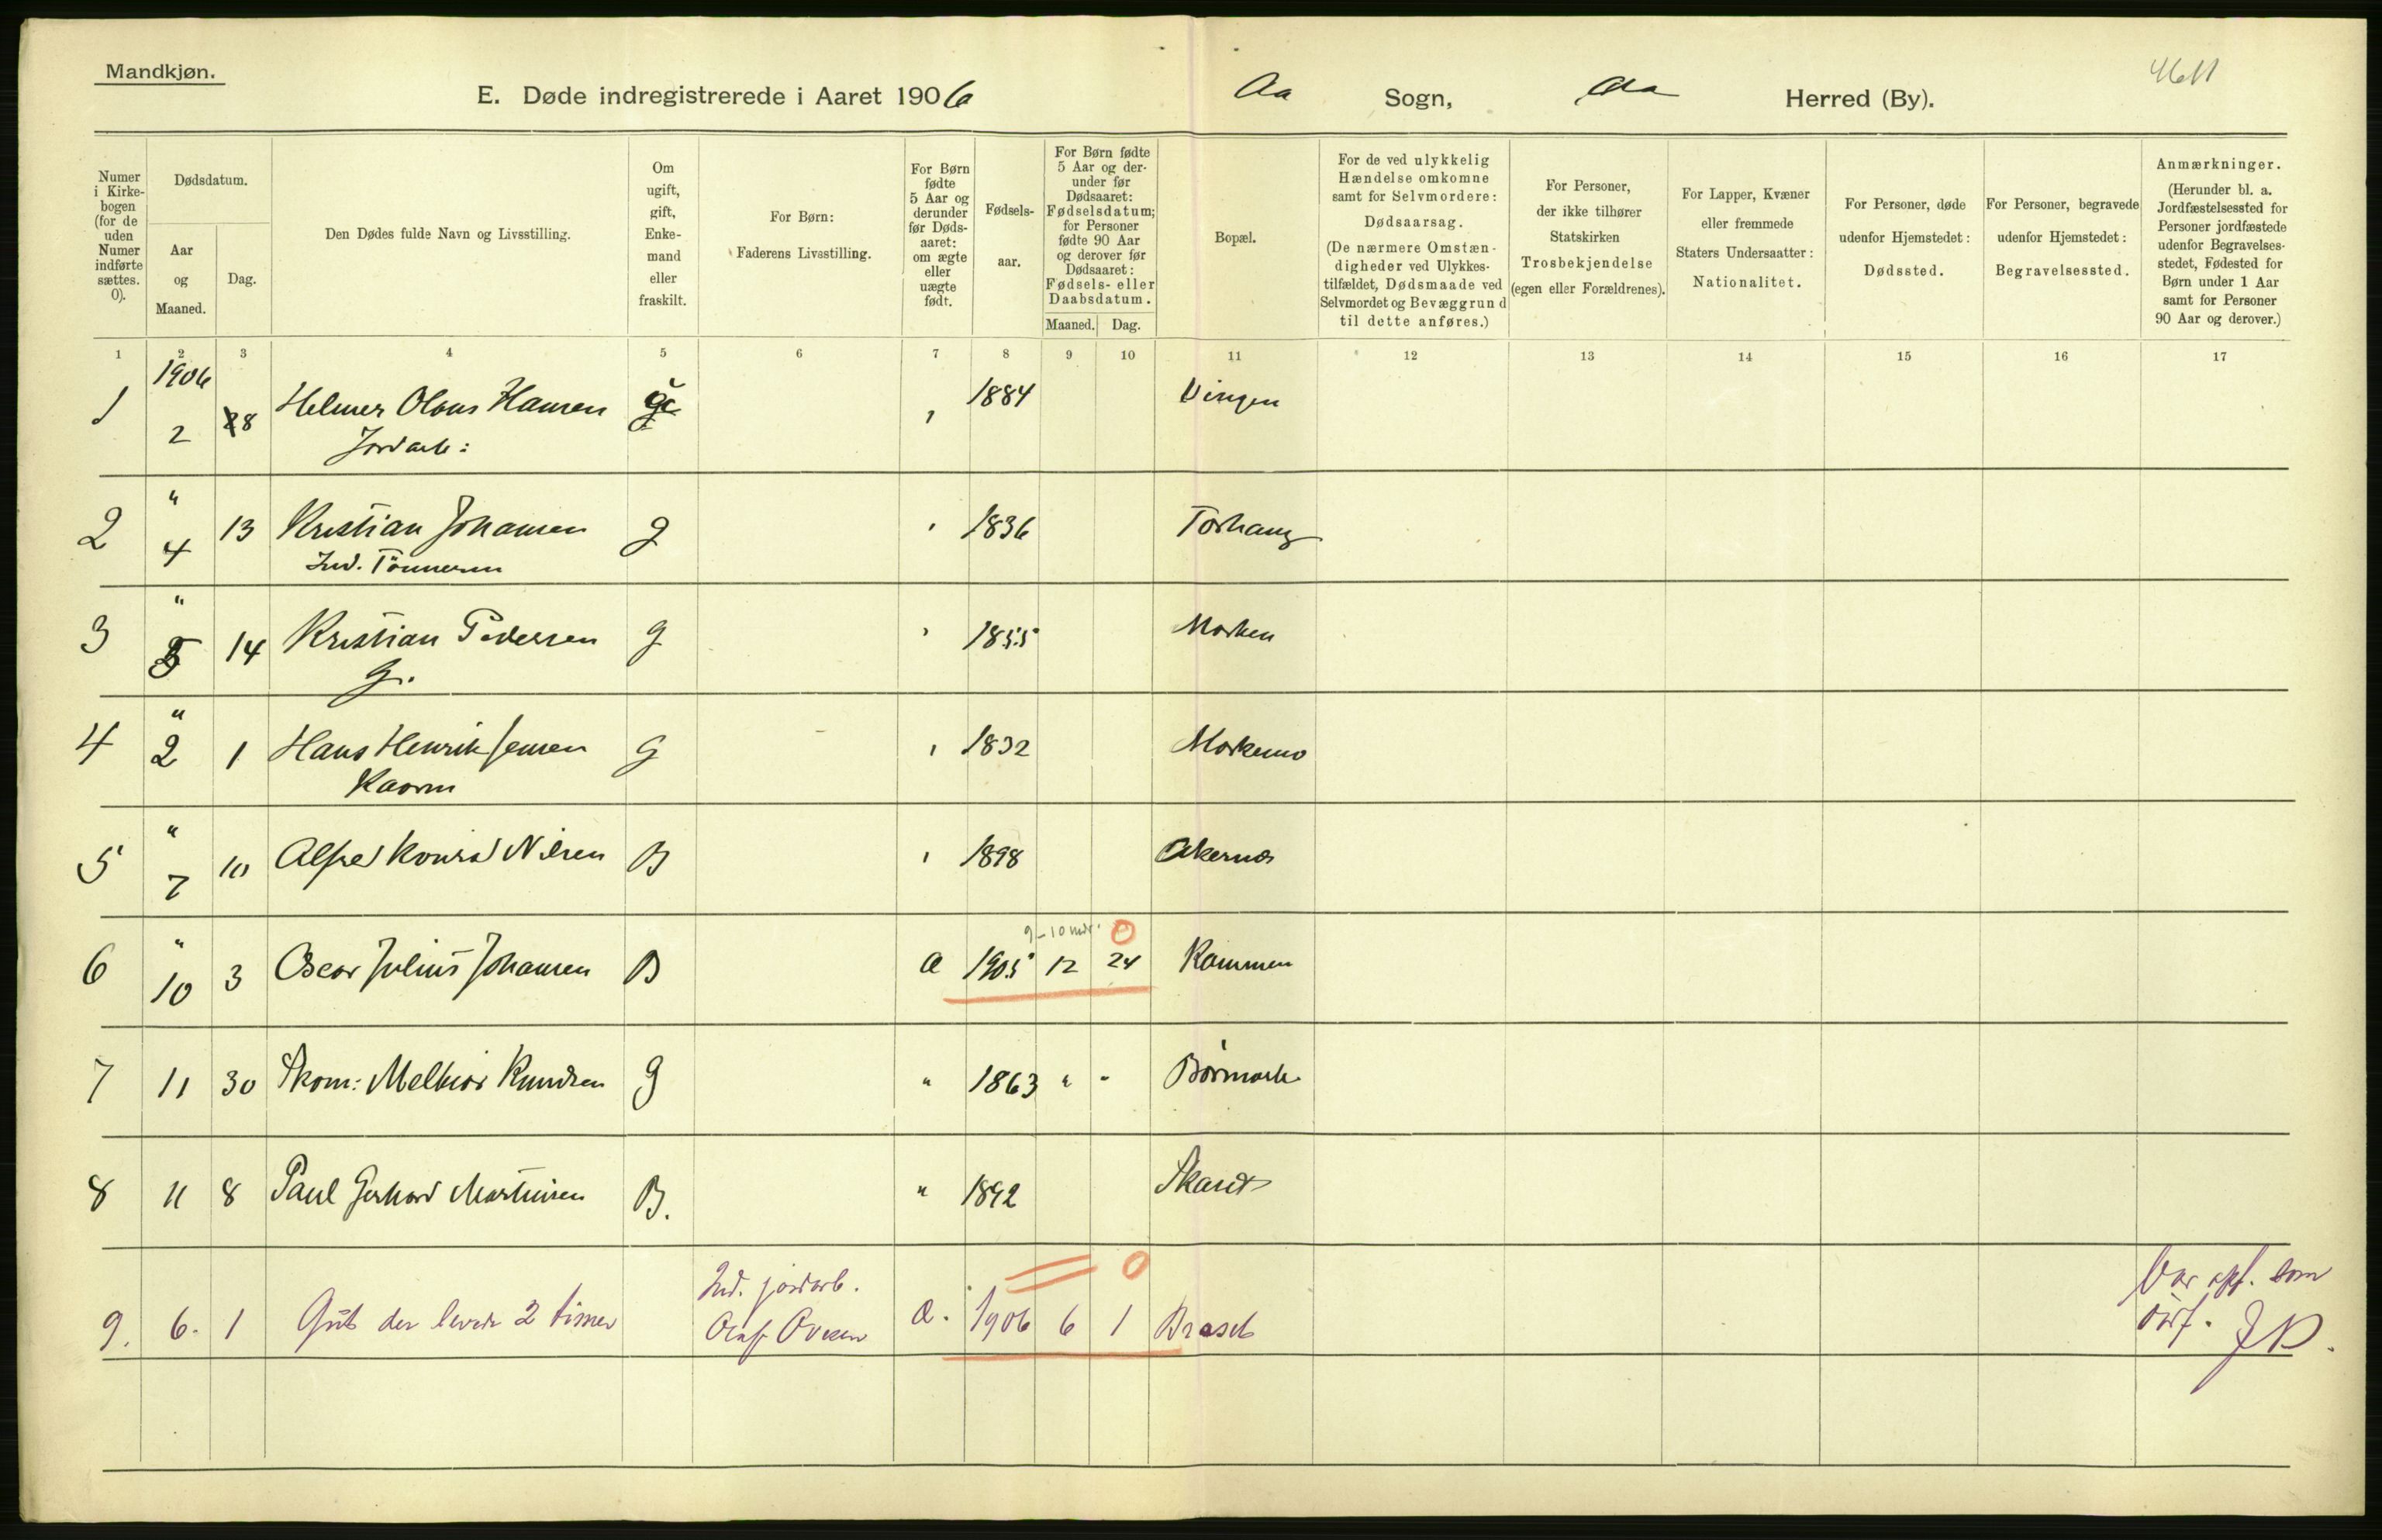 Mandkjøn.
E. Døde indregistrerede i Aaret 1906 Aa Sogn, Aa Herred (By).
Numer i Kirke-bogen (for de uden Numer indførte sættes. 0).
Dødsdatum.
Aar og Maaned.
Dag.
Den Dødes fulde Navn og Livsstilling.
Om ugift, gift, Enke-mand eller fraskilt.
For Børn:
Faderens Livsstilling.
For Børn fødte 5 Aar og derunder før Døds-aaret: om ægte eller uægte født.
Fødsels-aar.
For Børn fødte 5 Aar og der-under før Dødsaaret: Fødselsdatum; for Personer fødte 90 Aar og derover før Dødsaaret: Fødsels- eller Daabsdatum.
Maaned. Dag.
Bopæl.
For de ved ulykkelig Hændelse omkomne samt for Selvmordere:
Dødsaarsag.
(De nærmere Omstæn-digheder ved Ulykkes-tilfældet, Dødsmaade ved Selvmordet og Bevæggrund til dette anføres.)
For Personer, der ikke tilhører Statskirken
Trosbekjendelse
(egen eller Forældrenes).
For Lapper, Kvæner eller fremmede Staters Undersaatter:
Nationalitet.
For Personer, døde udenfor Hjemstedet:
Dødssted.
For Personer, begravede udenfor Hjemstedet:
Begravelsessted.
Anmærkninger.
(Herunder bl. a. Jordfæstelsessted for Personer jordfæstede udenfor Begravelses-stedet, Fødested for Børn under 1 Aar samt for Personer 90 Aar og derover.)
1 2 3 4 5 6 7 8 9 10 11 12 13 14 15 16 17
1906
1 2 8 Helmer Olaus Hansen 1884 Vingen
Jordarb:
"
2 4 13 Kristian Johansen g 1836 Torhaug
Ind. Tönnesen
"
3 5 14 Kristian Pedersen g 1855 Morken
G.
"
4 2 1 Hans Henrik Jensen g 1832 Morkemo
Kaarm
"
5 7 10 Alfred Konrad Nilsen B 1898 Akernes
" 9-10 mdr. 0
6 10 3 Oscar Julius Johansen B a 1905 12 24 Kammen
7 11 30 Skom: Melkior Knudsen g " 1863 " " Börmark
8 11 8 Paul Gerhard Martinsen B. " 1892 Skaret
Ind. jordarb. 0 Var opf. som
9. 6. 1 Gut der levede 2 timer Olaf Ovesen a. 1906 6 1 Braset